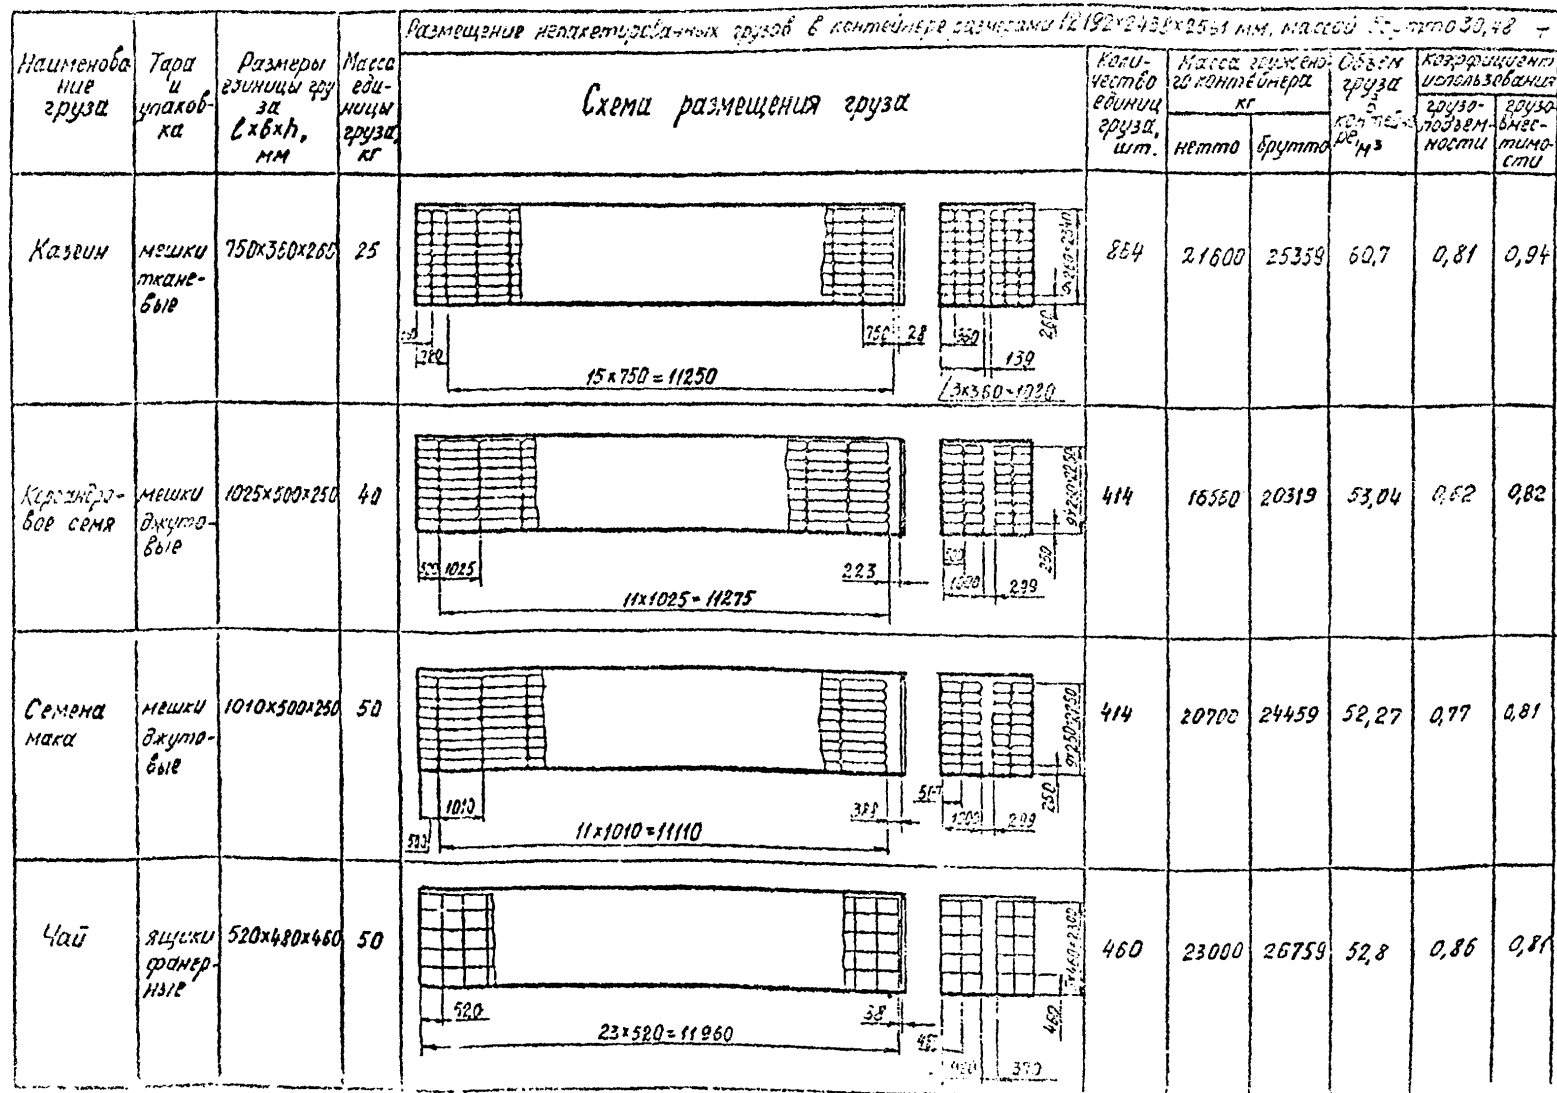 Размещение непакетированных грузов в контейнере размерами 12192×2438×2591 мм, массой брутто 30,48 т
Наименова
ние
груза
Тара
и
упаков-
ка
Размеры
единицы гру
за
l×b×h,
мм
Масса
еди-
ницы
груза,
кг
Схема размещения груза
Коли-
чество
единиц
груза,
шт.
Масса гружено
го контейнера
кг
нетто
брутто
Объем
груза
в
контейне
ре, м³
Коэффициент
использования
грузо-
подъем-
ности
грузо-
вмес-
тимо-
сти
Казеин
мешки
ткане-
вые
750×360×260
25
750
28
15×750=11250
360
139
260
9×260=2340
864
21600
25359
60,7
0,81
0,94
Кориандро-
вое семя
мешки
джуто-
вые
1025×500×250
40
500
1025
223
11×1025=11275
500
1000
299
250
414
16560
20319
53,04
0,62
0,82
Семена
мака
мешки
джуто-
вые
1010×500×250
50
500
1010
388
11×1010=11110
1000
299
250
9×250=2250
414
20700
24459
52,27
0,77
0,81
Чай
ящики
фанер-
ные
520×480×460
50
520
38
23×520=11960
370
460
5×460=2300
460
23000
26759
52,8
0,86
0,81